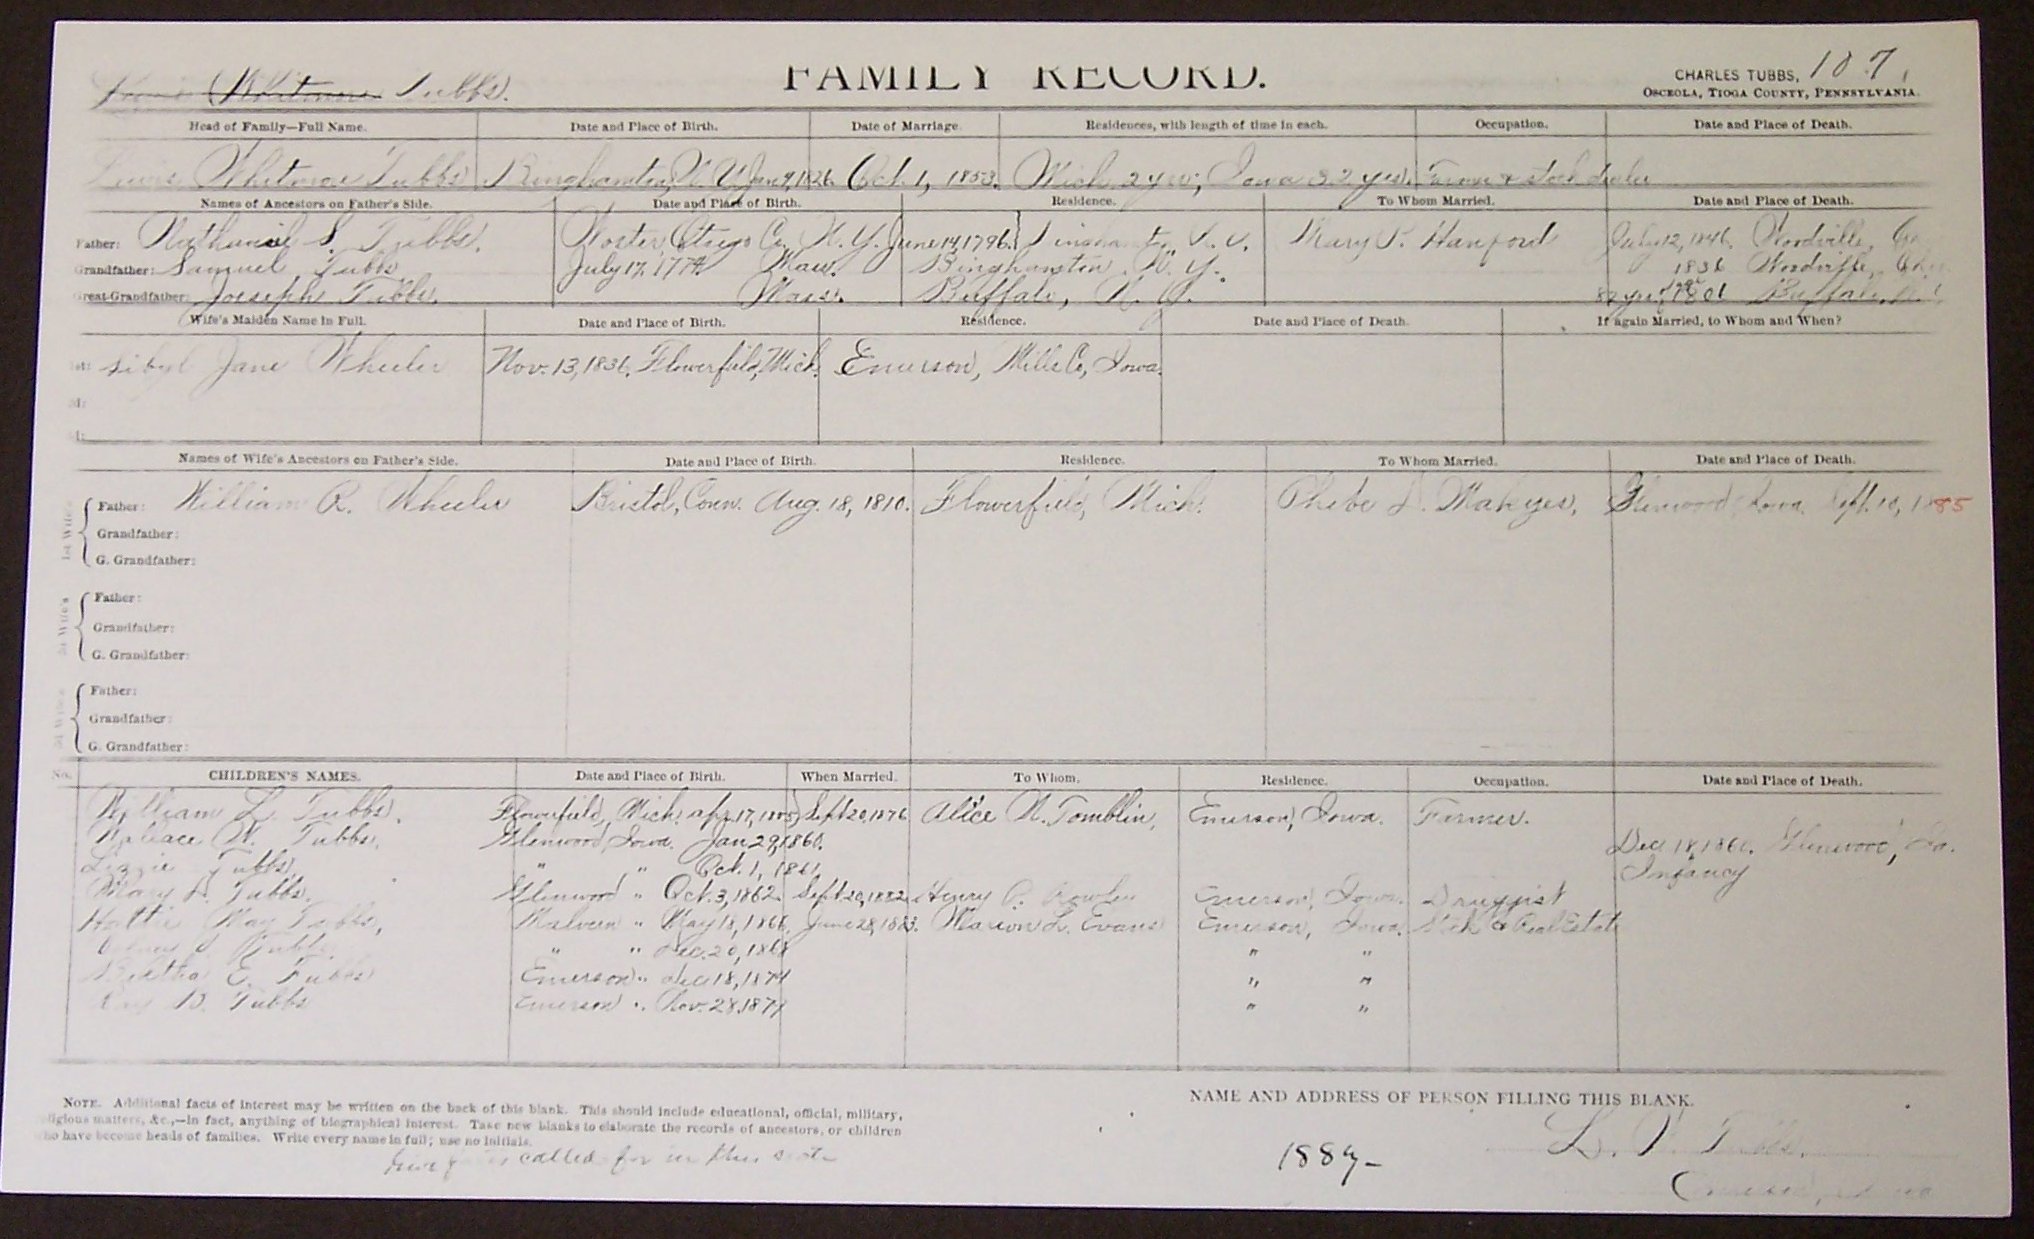 Whitmore Tubbs.
FAMILY RECORD.
CHARLES TUBBS, 107,
OSCEOLA, TIOGA COUNTY, PENNSYLVANIA.
Head of Family—Full Name. Date and Place of Birth. Date of Marriage. Residences, with length of time in each. Occupation. Date and Place of Death.
Lewis Whitmore Tubbs Binghamton, N. Y. Jan 9, 1826. Oct. 1, 1853. Mich. 2 yrs; Iowa 32 yrs. Farmer & stock dealer
Names of Ancestors on Father's Side. Date and Place of Birth. Residence. To Whom Married. Date and Place of Death.
Father: Nathaniel S. Tubbs. Otsego Co. N. Y. June 14, 1796. Mary P. Hanford July 12, 1846. Woodville,
Grandfather: Samuel Tubbs July 17, 1774. Mass. Binghamton N. Y. 1836 Woodville,
Great-Grandfather: Joseph Tubbs. Mass. Buffalo, N. Y. 1801 Buffalo,
Wife's Maiden Name in Full. Date and Place of Birth. Residence. Date and Place of Death. If again Married, to Whom and When?
1st: Sibyl Jane Wheeler Nov. 13, 1836, Flowerfield, Mich. Emerson, Mills Co, Iowa.
Names of Wife's Ancestors on Father's Side. Date and Place of Birth. Residence. To Whom Married. Date and Place of Death.
1st Wife's
Father: William R. Wheeler Bristol, Conn. Aug. 18, 1810. Flowerfield, Mich. Phebe Makyes, Glenwood Iowa. Sept. 10, 1885
Grandfather:
G. Grandfather:
Father:
Grandfather:
G. Grandfather:
Father:
Grandfather:
G. Grandfather:
No. CHILDREN'S NAMES. Date and Place of Birth. When Married. To Whom. Residence. Occupation. Date and Place of Death.
William L. Tubbs. Flowerfield, Mich. Apr. 17, Sept 20, 1876 Alice N. Tomblin, Emerson, Iowa. Farmer.
Wallace W. Tubbs, Glenwood, Iowa. Jan 29, 1860. Dec 18, Glenwood, Ia.
Lizzie Tubbs, " " Oct. 1, 1861. Infancy
Mary Tubbs. Glenwood " Oct. 3, 1862. Sept 20, 1882 Henry Emerson, Iowa. Druggist
Hattie May Tubbs, Malvern " May 18, 1866, June 28, 1883. Marion L. Evans Emerson, Iowa. Stock & Real Estate
Tubbs. " " Dec. 20, 1868 " "
Bertha E. Tubbs Emerson " Dec 18, 1874 " "
Ray D. Tubbs Emerson " Nov. 28, " "
NOTE. Additional facts of interest may be written on the back of this blank. This should include educational, official, military,
religious matters, &c.,—in fact, anything of biographical interest. Take new blanks to elaborate the records of ancestors, or children
who have become heads of families. Write every name in full; use no initials.
called for in this
NAME AND ADDRESS OF PERSON FILLING THIS BLANK.
1889—
L. W. Tubbs.
Emerson, Iowa